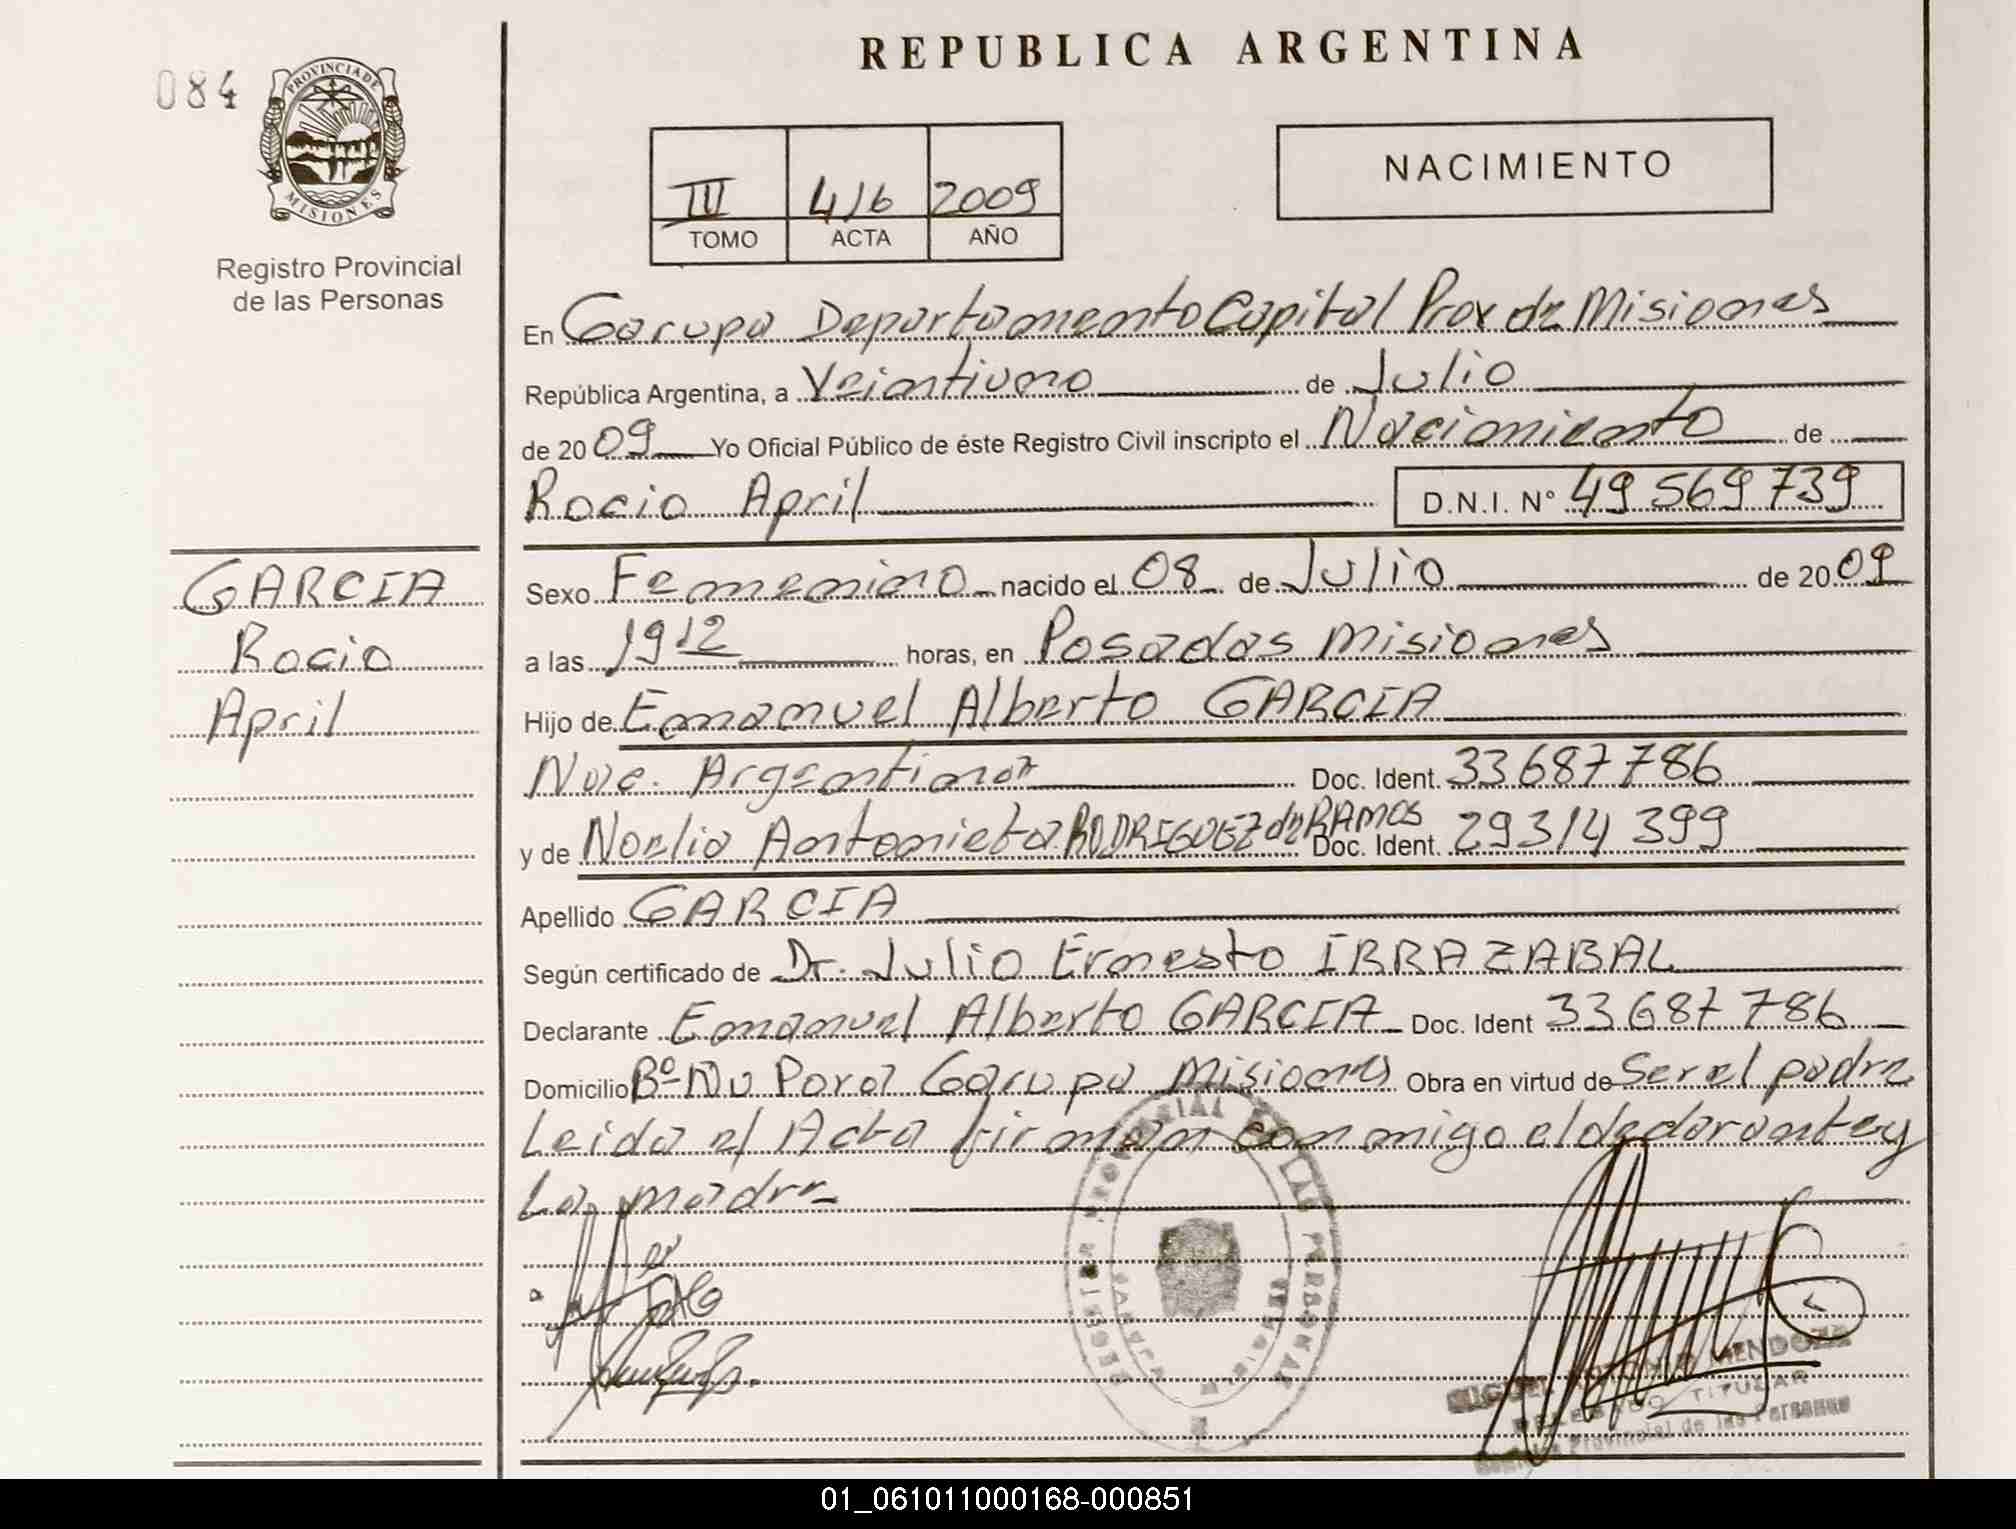 REPUBLICA ARGENTINA
084
PROVINCIA DE
MISIONES
Registro Provincial
de las Personas
NACIMIENTO
III 416 2009
TOMO ACTA AÑO
En Garupa Departamento Capital Prov de Misiones
República Argentina, a Veintiuno de Julio
de 2009 Yo Oficial Público de éste Registro Civil inscripto el Nacimiento de
Rocio April D.N.I. Nº 49 569 739
GARCIA
Rocio
April
Sexo Femenino nacido el 08 de Julio de 2009
a las 1912 horas, en Posadas Misiones
Hijo de Emanuel Alberto GARCIA
Nac. Argentina Doc. Ident. 33687786
y de Noelia Antonieta RODRIGUEZ de RAMOS Doc. Ident. 29314399
Apellido GARCIA
Según certificado de Dr. Julio Ernesto IRRAZABAL
Declarante Emanuel Alberto GARCIA Doc. Ident 33687786
Domicilio Bº Ñu Pora Garupa Misiones Obra en virtud de Ser el padre
Leida el Acta firman conmigo el declarante y
La madre
MENDOZA
TITULAR
Provincial de las Personas
01_061011000168-000851